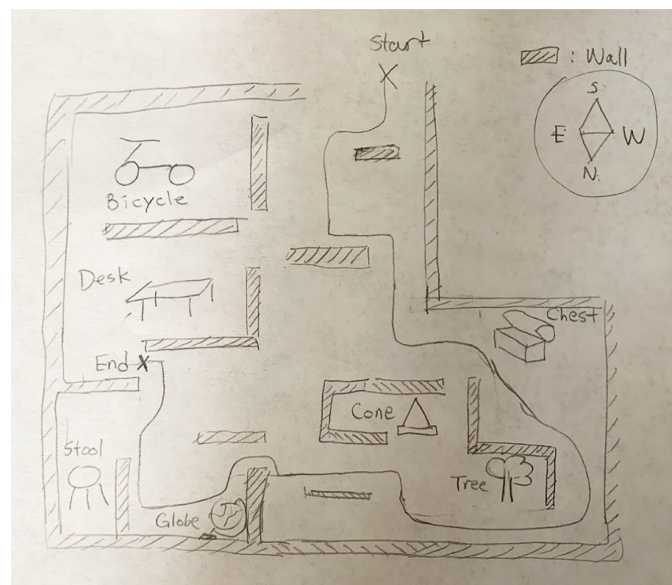 Start
: Wall
S
E W
N
Bicycle
Desk
Chest
End X
Cone
Stool
Tree
Globe